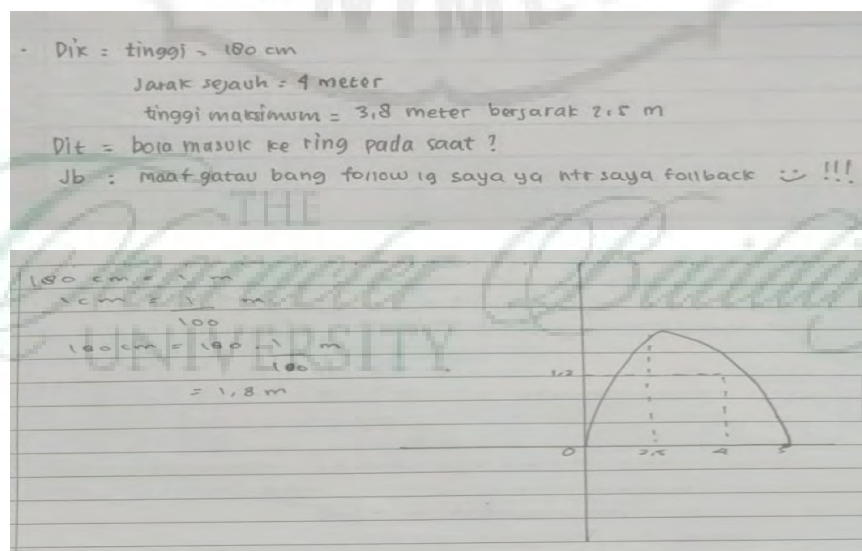 - Dik = tinggi = 180 cm
Jarak sejauh = 4 meter
tinggi maksimum = 3,8 meter berjarak 2,5 m
Dit = bola masuk ke ring pada saat ?
Jb : maaf gatau bang follow ig saya ya ntr saya follback :) !!!
THE
Character Building
UNIVERSITY
180 cm = ... m
1 cm = 1/100 m
180 cm = 180 · 1/100 m
= 1,8 m
1,2
0 2,5 4 5